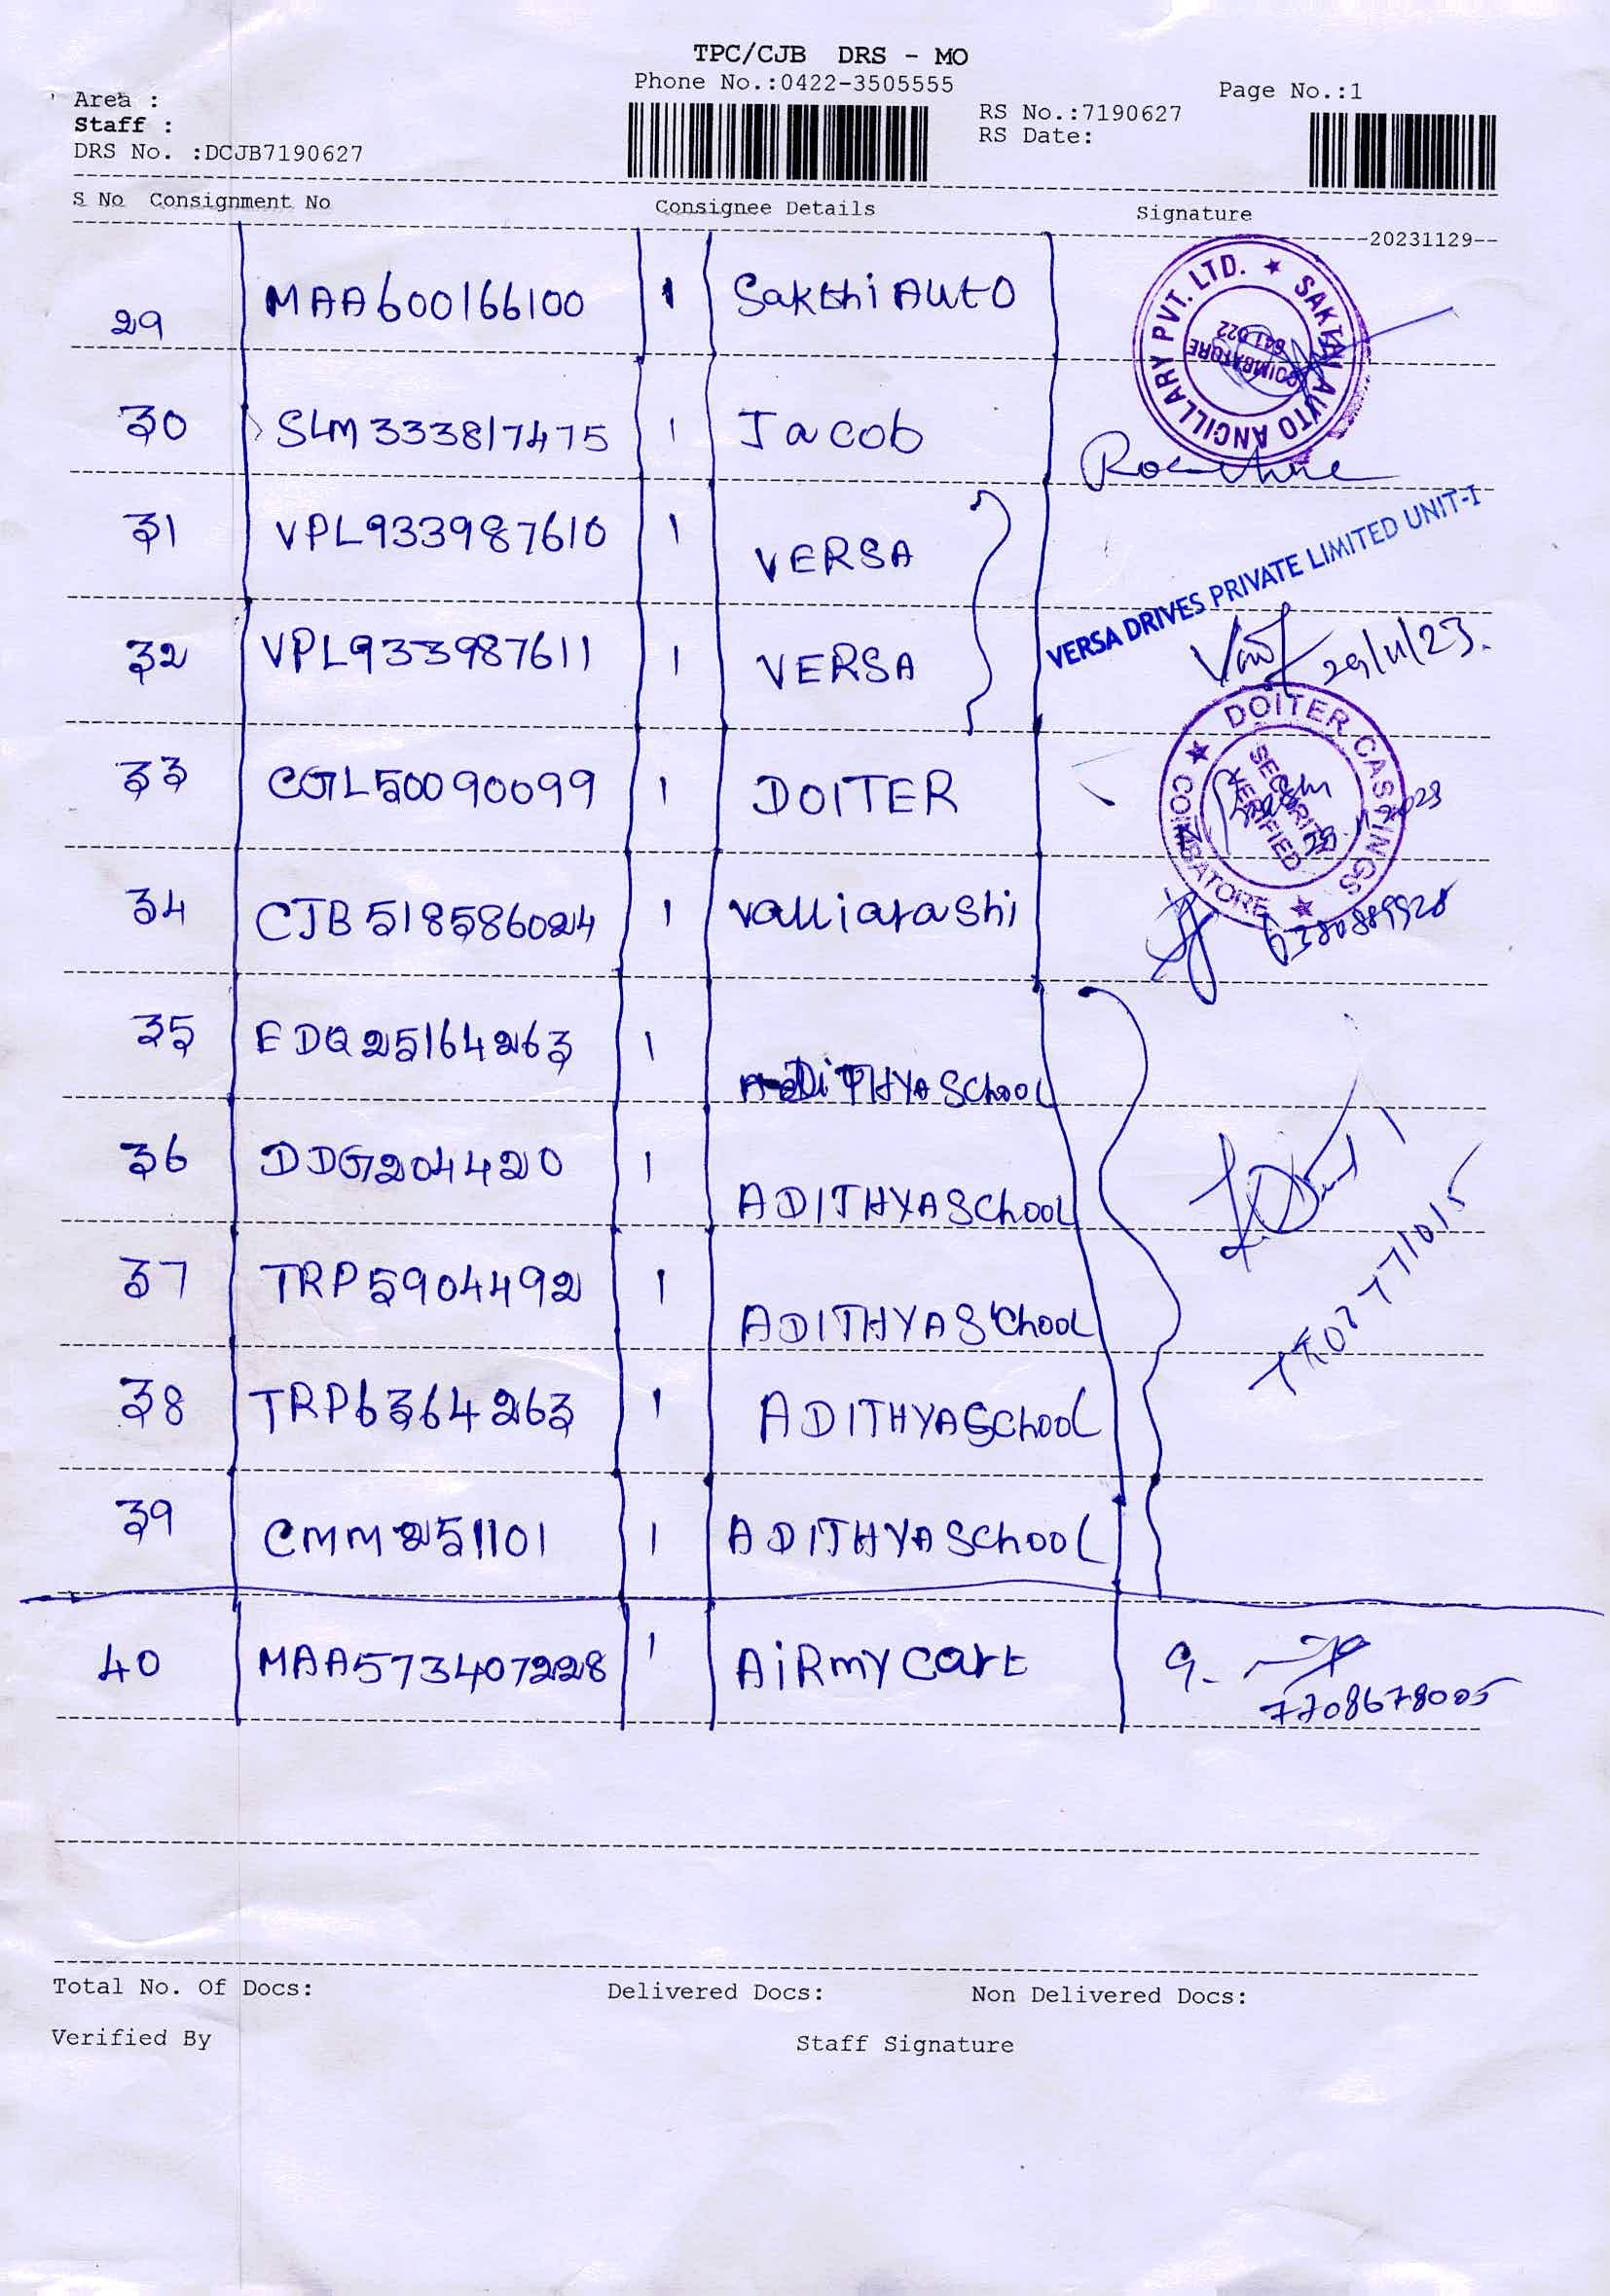 TPC/CJB DRS - MO
Phone No.:0422-3505555
Page No.:1
Area :
Staff :
DRS No. :DCJB7190627
RS No.:7190627
RS Date:
S No Consignment No Consignee Details Signature
20231129
29 MAA600166100 1 Sakthi Auto
SAKTHI AUTO ANCILLARY PVT. LTD.
COIMBATORE
641 022
30 SLM333817475 1 Jacob
31 VPL933987610 1 VERSA
VERSA DRIVES PRIVATE LIMITED UNIT-I
32 VPL933987611 1 VERSA
29/11/23.
33 CGL50090099 1 DOITER
DOITER CASTINGS COIMBATORE
SECURITY
VERIFIED
34 CJB518586024 1 Valliarashi
35 EDQ25164263 1 ADITHYA School
36 DDG204420 1 ADITHYA School
37 TRP5904492 1 ADITHYA School
38 TRP6364263 1 ADITHYA School
39 CMM251101 1 ADITHYA School
40 MAA573407228 1 AiRmy cart
7708678005
Total No. Of Docs: Delivered Docs: Non Delivered Docs:
Verified By Staff Signature